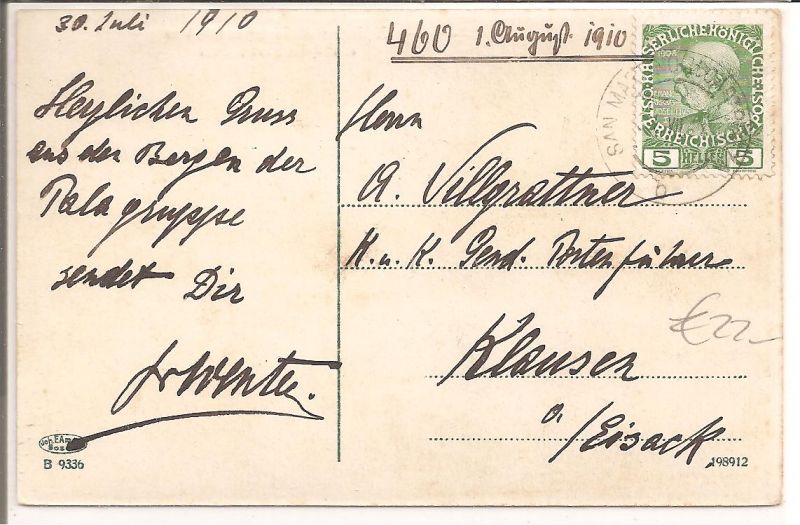 30. Juli 1910
460 1. August 1910
Herzlichen Gruss
aus den Bergen der
Pala gruppe
sendet Dir
Herrn
A. Villgrattner
K. u. K. Gend. Postenführer
Klausen
a/Eisack
€22-
KAISERLICHEKÖNIGLICHE
ÖSTERREICHISCHE POST
1908
5 HELLER 5
SAN MAR
Joh. F. Am
Boz
B 9336
198912